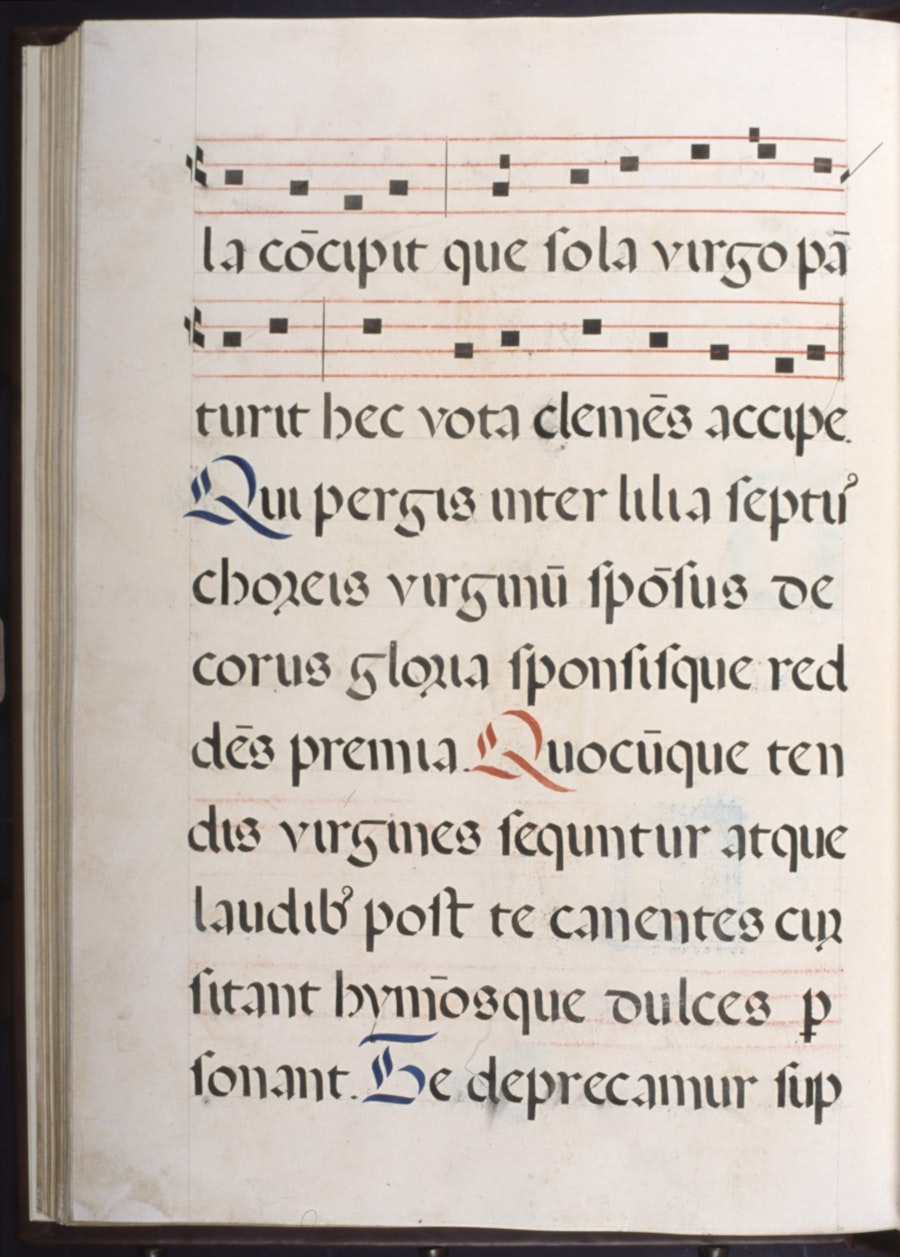 la cōcipit que ſola virgo pā
turit hec vota clemēs accipe.
Qui pergis inter lilia ſeptuꝰ
choꝛeis virginū ſpōſus de
corus gloꝛia ſponſiſque red
dēs premia. Quocūque ten
dis virgines ſequntur atque
laudibꝰ poſt te canentes cuꝛ
ſitant hym̄osque dulces ꝑ
ſonant. Te deprecamur ſup